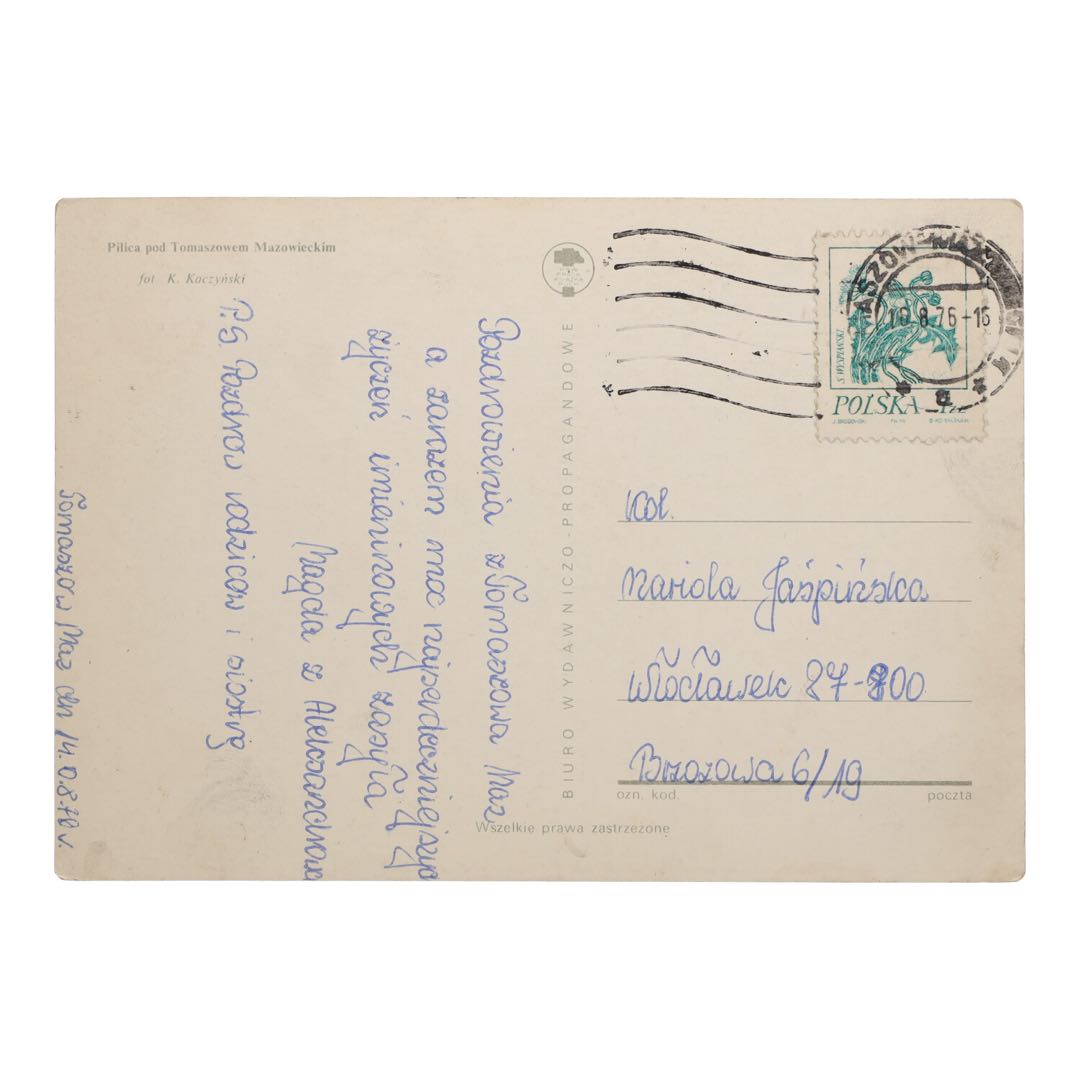 Pilica pod Tomaszowem Mazowieckim
fot K. Kaczyński
Pozdrowienia z Tomaszowa Maz
a zarazem moc najserdeczniejszych
życzeń imieninowych zasyła
Magda z Aleksandrowa
P.S Pozdrów rodziców i siostrę
Tomaszów Maz dn 14.08.76 r.
BIURO WYDAWNICZO-PROPAGANDOWE
S. WYSPIAŃSKI
POLSKA
ASZÓW-MAZ
8.76-16
a
Kol.
Mariola Jaśpińska
Włocławek 87-800
Brzozowa 6/19
ozn. kod. poczta
Wszelkie prawa zastrzeżone